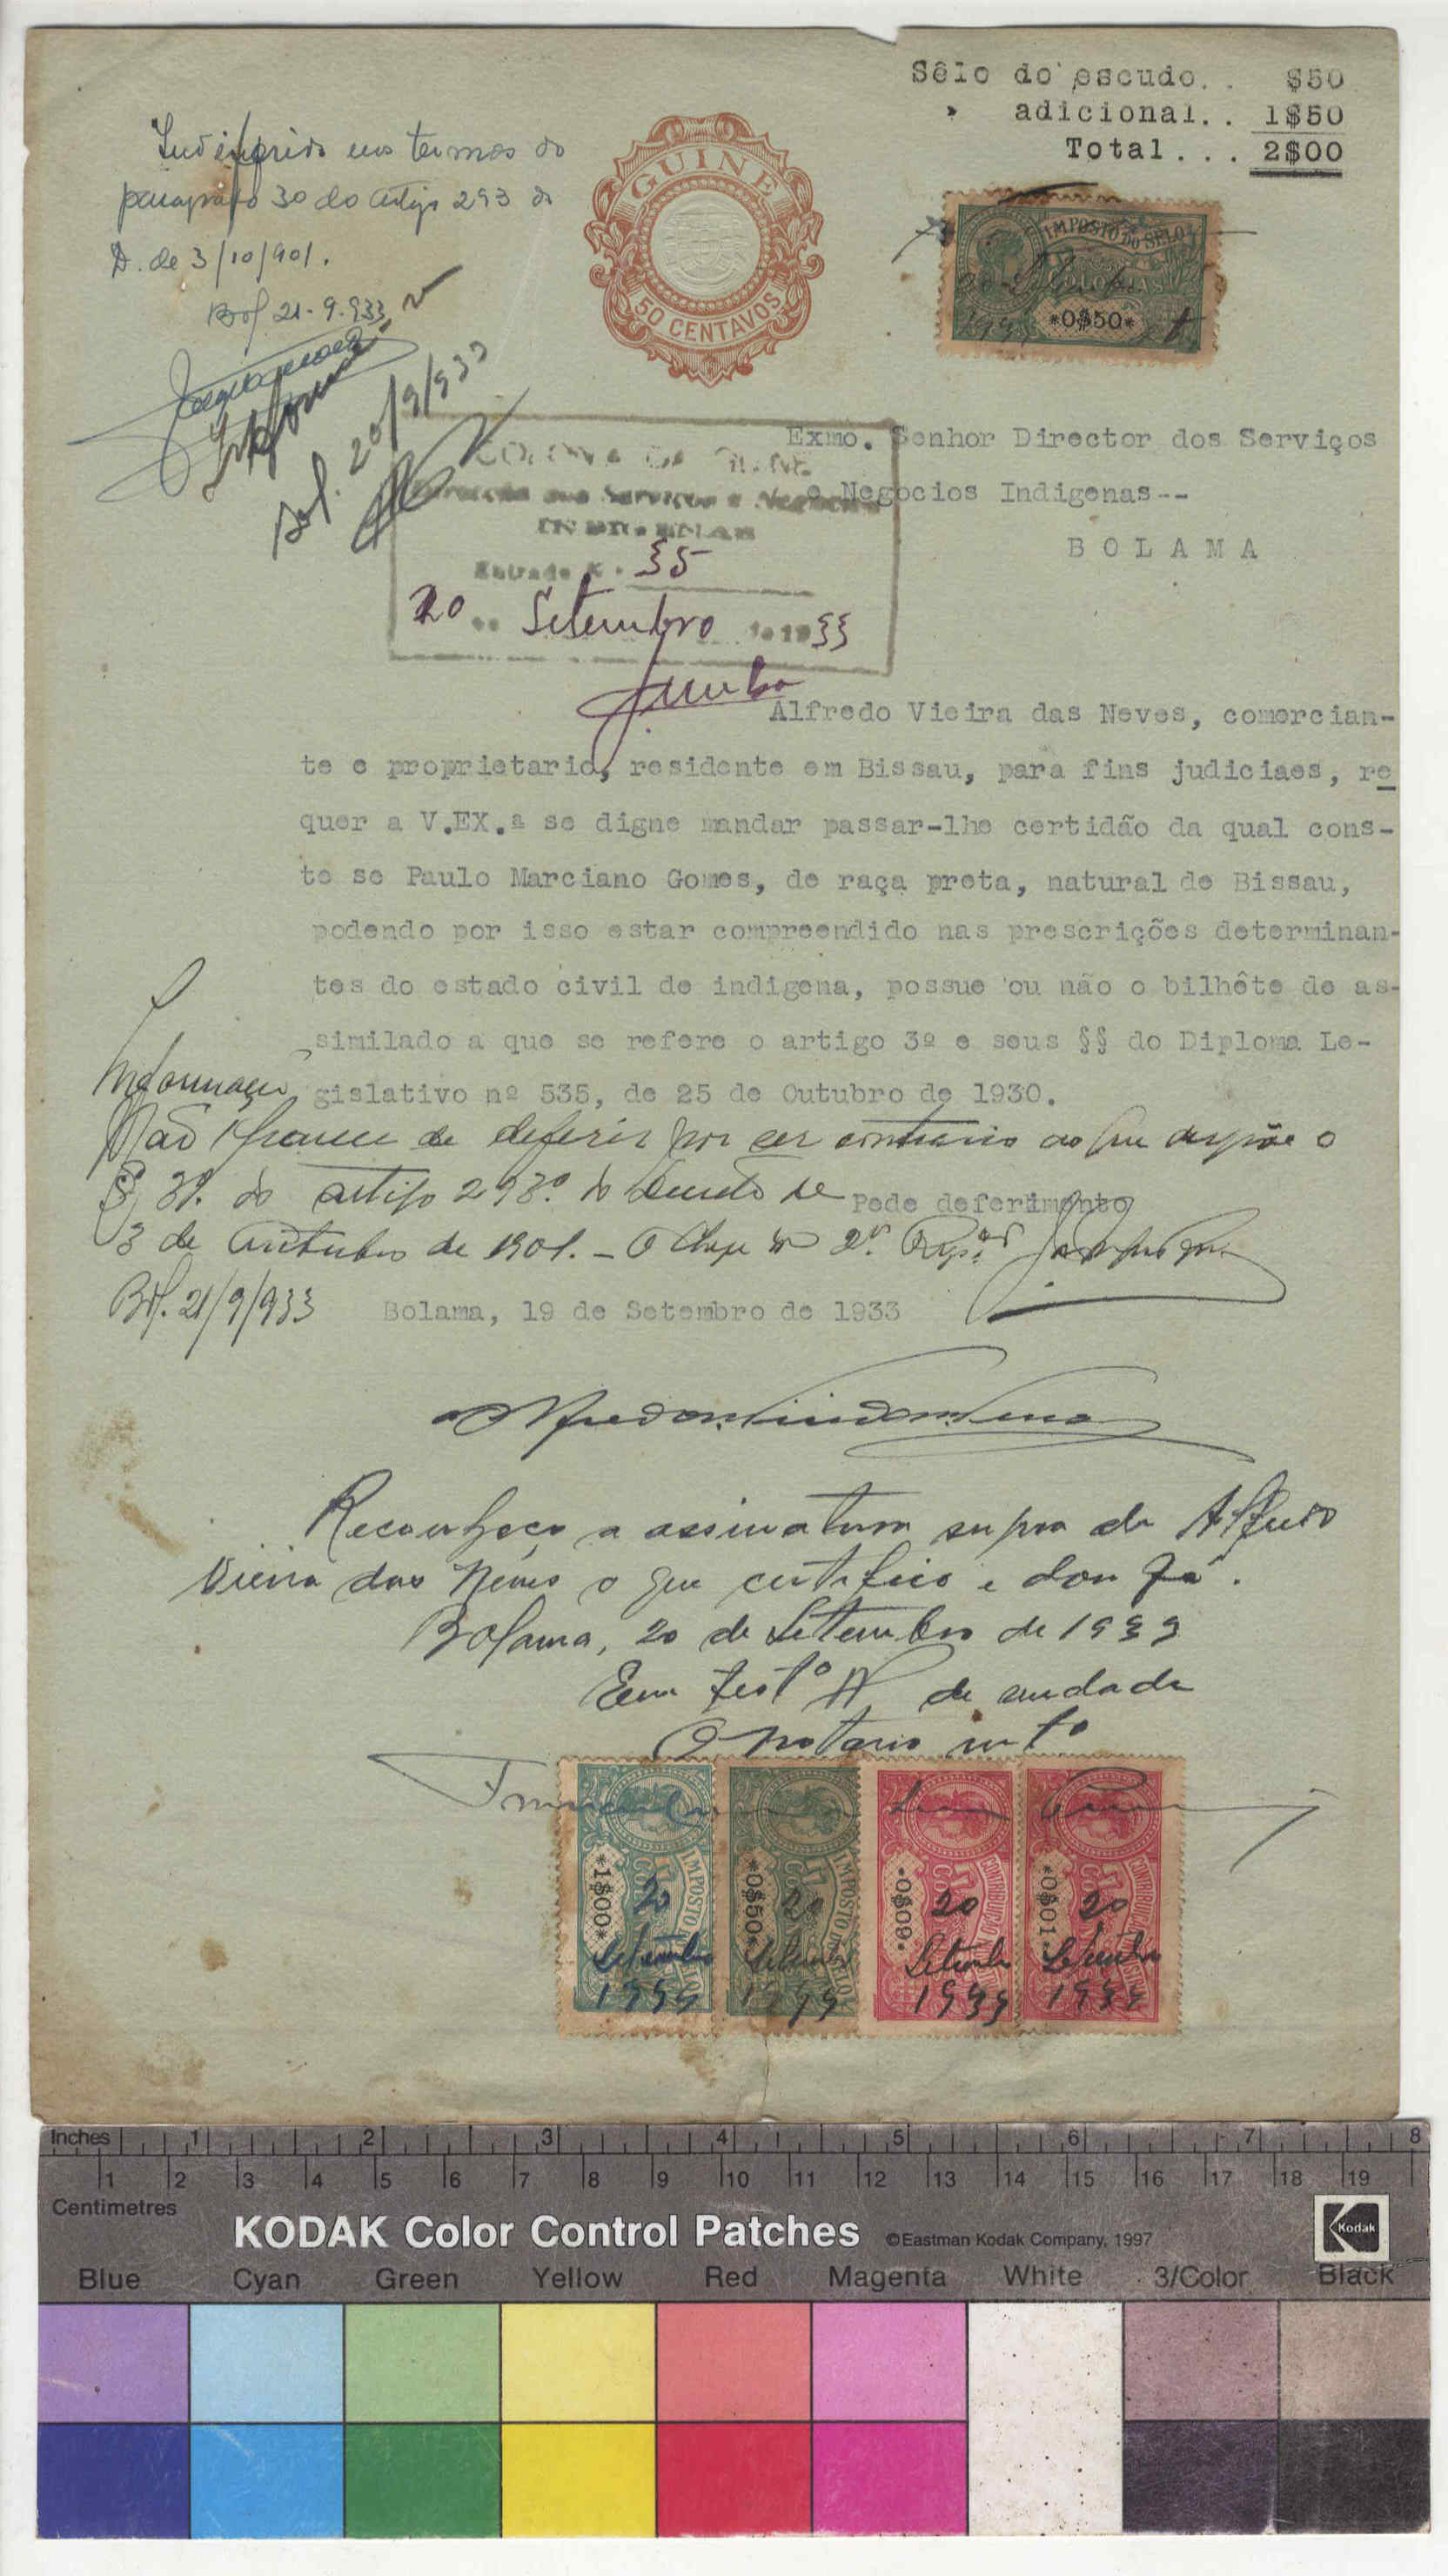 Sêlo do escudo.. $50
" adicional.. 1$50
Total... 2$00
Indeferido nos termos do
paragrafo 3o do artigo 293 do
D. de 3/10/901.
Bol 21-9-933
Informe
Bol. 20/9/933
GUINÉ
50 CENTAVOS
IMPOSTO DO SELO
COLONIAS
*0$50*
COLONIA DA GUINÉ
Direcção dos Serviços e Negocios
INDIGENAS
Entrada N.º 35
20 de Setembro de 1933
Exmo. Senhor Director dos Serviços
e Negocios Indigenas--
BOLAMA
Alfredo Vieira das Neves, comercian-
te e proprietario, residente em Bissau, para fins judiciaes, re
quer a V.EX.ª se digne mandar passar-lhe certidão da qual cons-
te se Paulo Marciano Gomes, de raça preta, natural de Bissau,
podendo por isso estar compreendido nas prescrições determinan-
tes do estado civil de indigena, possue ou não o bilhête de as-
similado a que se refere o artigo 3º e seus §§ do Diploma Le-
gislativo nº 535, de 25 de Outubro de 1930.
Informação
Não é de deferir por ser contrario ao que dispõe o
§ 3º. do artigo 293º do Decreto de
Pede deferimento
3 de Outubro de 1901. - O Chefe da 2ª. Repªm
Bol. 21/9/933
Bolama, 19 de Setembro de 1933
Alfredo Vieira das Neves
Reconheço a assinatura supra de Alfredo
Vieira das Neves o que certifico e dou fé.
Bolama, 20 de Setembro de 1933
Em testº de verdade
O notario intº
*1$00* IMPOSTO DO SELO
20 Setembro 1933
*0$50* IMPOSTO DO SELO
20 Setembro 1933
*0$09* CONTRIBUIÇÃO INDUSTRIAL
20 Setembro 1933
*0$01* CONTRIBUIÇÃO INDUSTRIAL
20 Setembro 1933
Inches 1 2 3 4 5 6 7 8
1 2 3 4 5 6 7 8 9 10 11 12 13 14 15 16 17 18 19
Centimetres
KODAK Color Control Patches ©Eastman Kodak Company, 1997 Kodak
Blue Cyan Green Yellow Red Magenta White 3/Color Black